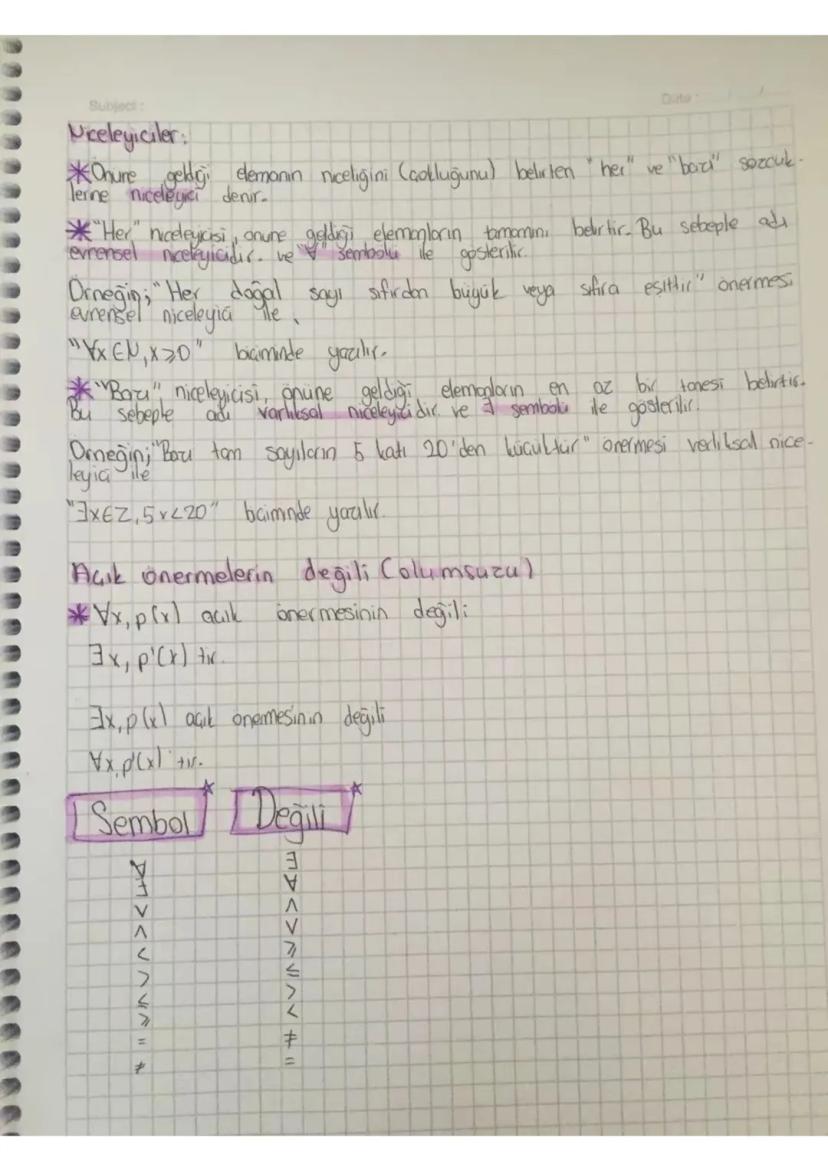 Subject:
Date:
Niceleyiciler:
*Önüne geldiği elemanın niceliğini (çokluğunu) belirten "her" ve "bazı" sözcük-
lerine niceleyici denir.
*"Her" niceleyicisi, önüne geldiği elemanların tamamını belirtir. Bu sebeple adı
evrensel niceleyicidir. ve "∀" sembolü ile gösterilir.
Örneğin; "Her doğal sayı sıfırdan büyük veya sıfıra eşittir" önermesi
evrensel niceleyici ile,
"∀x∈N, x≥0" biçiminde yazılır.
*"Bazı" niceleyicisi, önüne geldiği elemanların en az bir tanesi belirtir.
Bu sebeple adı varlıksal niceleyicidir. ve ∃ sembolü ile gösterilir.
Örneğin; "Bazı tam sayıların 5 katı 20'den küçüktür" önermesi varlıksal nice-
leyici ile
"∃x∈Z, 5x<20" biçiminde yazılır.
Açık önermelerin değili (olumsuzu)
*∀x, p(x) açık önermesinin değili
∃x, p'(x) tir.
∃x, p(x) açık önermesinin değili
∀x, p'(x) tir.
Sembol* Değili*
∀ ∃
∃ ∀
∨ ∧
∧ ∨
< ≥
> ≤
≤ >
≥ <
= ≠
≠ =